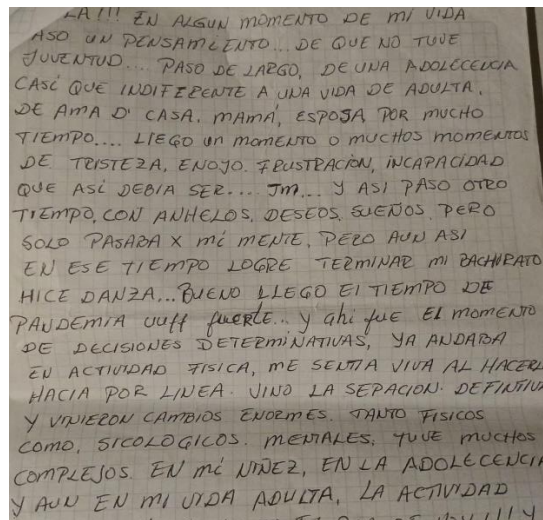 LA!!! EN ALGUN MOMENTO DE MI VIDA
ASO UN PENSAMIENTO... DE QUE NO TUVE
JUVENTUD.... PASO DE LARGO, DE UNA ADOLECENCIA
CASI QUE INDIFERENTE A UNA VIDA DE ADULTA,
DE AMA D' CASA, MAMÁ, ESPOSA POR MUCHO
TIEMPO.... LlEGO un momENTO O muCHOS momENTOS
DE TRISTEZA, ENOJO. FRUSTRACIÓN, INCAPACIDAD
QUE ASÍ DEBIA SER.... Jm... Y ASI PASO OTRO
TIEMPO, CON ANHELOS, DESEOS, SUEÑOS, PERO
SOLO PASABA X mi MENTE, PERO AUN ASI
EN ESE TIEMPO LOGRE TERMINAR MI BACHIRATO
HICE DANZA...BUENO LLEGO El TIEMPO DE
PANDEMIA uuff fuerte... y ahi fue El momENTO
DE DECISIONES DETERMINATIVAS, YA ANDABA
EN ACTIVIDAD FISICA, ME SENTIA VIVA AL HACERL
HACIA POR LINEA. VINO LA SEPACION. DEFINTIVA
Y VINIERON CAMBIOS ENORMES. TANTO FISICOS
COMO, SICOLOGICOS. MENTALES, TUVE MUCHOS
COMPLEJOS. EN MI NIÑEZ, EN LA ADOLECENCIA
Y AUN EN MI VIDA ADULTA, LA ACTIVIDAD